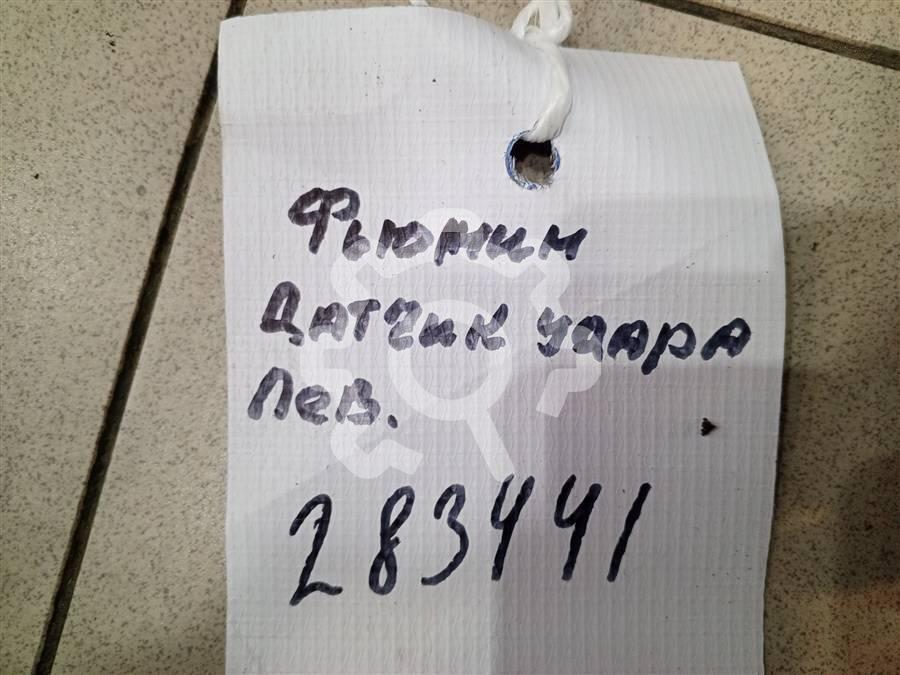 Фьюжин
Датчик удара
Лев.
283441